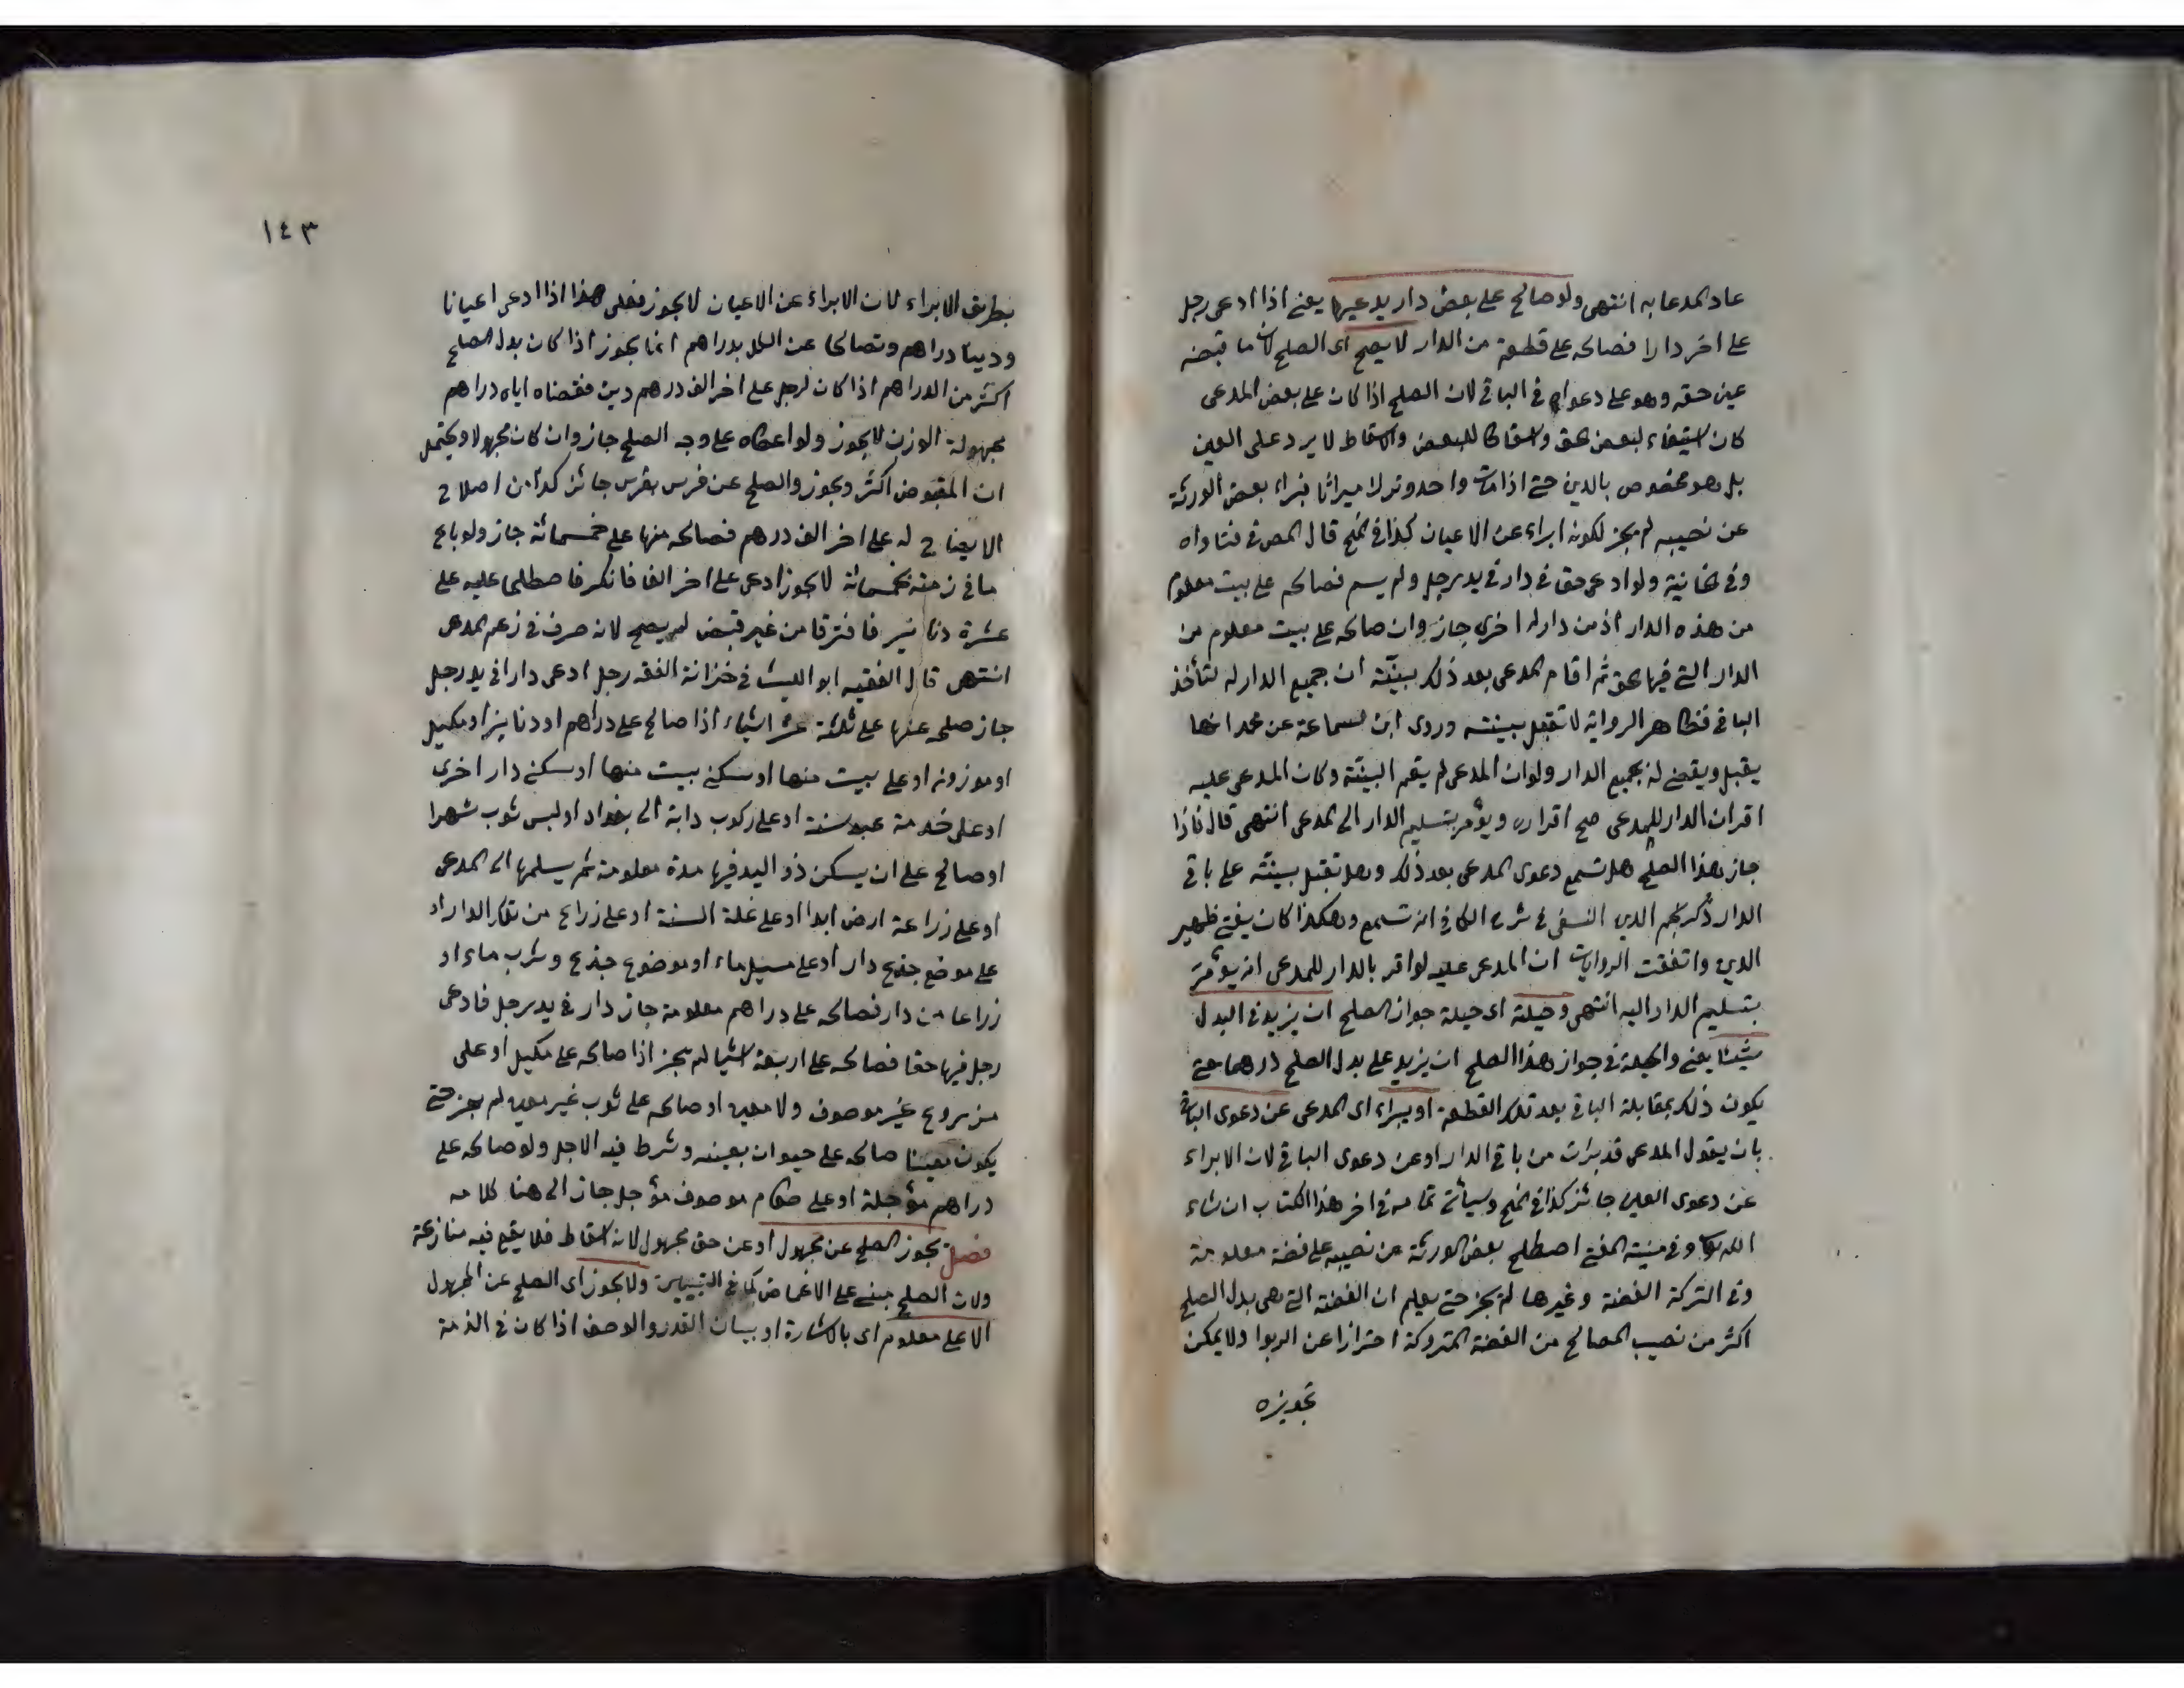 عاد المدعا به انتهى ولو صالح على بعض دار يدعيها يعنى اذا ادعى رجل
على اخر دارا فصالحه على قطعة من الدار لا يصح اى الصلح لان ما قبضه
عين حقه وهو على دعواه فى الباقى لان الصلح اذا كان على بعض المدعى
كان استيفاء لبعض الحق واسقاطا للبعض والاسقاط لا يرد على العين
بل هو مخصوص بالدين حتى اذا مات واحد وترك ميراثا فبراء بعض الورثة
عن نصيبه لم يجز لكونه ابراء عن الاعيان كذا فى المنح قال المص فى فتاواه
وفى الخانية ولو ادعى حقا فى دار فى يد رجل ولم يسم فصالحه على بيت معلوم
من هذه الدار او من دار له اخرى جاز وان صالحه على بيت معلوم من
الدار التى فيها الحق ثم اقام المدعى بعد ذلك بينة ان جميع الدار له لتأخذ
الباقى فظاهر الرواية لا تقبل بينته وروى ابن سماعة عن محمد انها
يقبل ويقضى له بجميع الدار ولو ان المدعى لم يقم البينة وكان المدعى عليه
اقر ان الدار للمدعى صح اقراره ويؤمر بتسليم الدار الى المدعى انتهى قال فاذا
جاز هذا الصلح هل تسمع دعوى المدعى بعد ذلك وهل تقبل بينته على باقى
الدار ذكر نجم الدين النسفى فى شرح الكافى انه تسمع وهكذا كان يفتى ظهير
الدين واتفقت الروايات ان المدعى عليه لو اقر بالدار للمدعى انه يؤمر
بتسليم الدار اليه انتهى وحيلته اى حيلة جواز الصلح ان يزيد فى البدل
شيئا يعنى والحيلة فى جواز هذا الصلح ان يزيد على بدل الصلح درهما حتى
يكون ذلك بمقابلة الباقى بعد تلك القطعة او يبراء اى المدعى عن دعوى الباقى
بان يقول المدعى قد برئت من باقى الدار او عن دعوى الباقى لان الابراء
عن دعوى العين جائز كذا فى المنح وسيأتى تمامه فى اخر هذا الكتاب ان شاء
الله تعالى وفى منية المفتى اصطلح بعض الورثة عن نصيبه على فضة معلومة
وفى التركة الفضة وغيرها لم يجز حتى يعلم ان الفضة التى هى بدل الصلح
اكثر من نصيب المصالح من الفضة المتروكة احترازا عن الربوا ولا يمكن
تجويزه
١٤٣
بطريق الابراء لان الابراء عن الاعيان لا يجوز فعلى هذا اذا ادعى اعيانا
ودينا دراهم وتصالحا عن الكل بدراهم انما يجوز اذا كان بدل الصلح
اكثر من الدراهم اذا كان لرجل على اخر الف درهم دين فقضاه اياه دراهم
مجهولة الوزن لا يجوز ولو اعطاه على وجه الصلح جاز وان كان مجهولا ويحتمل
ان المقبوض اكثر ويجوز والصلح عن فرس بفرس جائز كذا من اصلاح
الايضاح له على اخر الف درهم فصالحه منها على خمسمائة جاز ولو باع
ما فى ذمته بخمسمائة لا يجوز ادعى على اخر الفا فانكر فاصطلحا عليه على
عشرة دنانير فافترقا من غير قبض لم يصح لانه صرف فى زعم المدعى
انتهى قال الفقيه ابو الليث فى خزانة الفقه رجل ادعى دارا فى يد رجل
جاز صلحه عنها على ثلاثة عشر اشياء اذا صالح على دراهم او دنانير او مكيل
او موزونه او على بيت منها او سكنى بيت منها او سكنى دار اخرى
او على خدمة عبد سنة او على ركوب دابة الى بغداد او لبس ثوب شهرا
او صالح على ان يسكن ذو اليد فيها مدة معلومة ثم يسلمها الى المدعى
او على زراعة ارض ابدا او على غلة السنة او على زراع من تلك الدار او
على موضع جذع دار او على مسيل ماء او موضوع جذع وشرب ماء او
زراعا من دار فصالحه على دراهم معلومة جاز دار فى يد رجل فادعى
رجل فيها حقا فصالحه على اربعة اشيا لم يجز اذا صالحه على مكيل او على
مزروع غير موصوف ولا معين او صالحه على ثوب غير معين لم يجز حتى
يكون معينا صالحه على حيوان بعينه وشرط فيه الاجل ولو صالحه على
دراهم مؤجلة او على طعام موصوف مؤجل جاز الى هنا كلامه
فصل يجوز الصلح عن مجهول او عن حق مجهول لانه اسقاط فلا يقع فيه منازعة
ولان الصلح مبنى على الاغماض كما فى التبيين ولا يجوز اى الصلح عن المجهول
الا على معلوم اى بالاشارة او ببيان القدر والوصف اذا كان فى الذمة